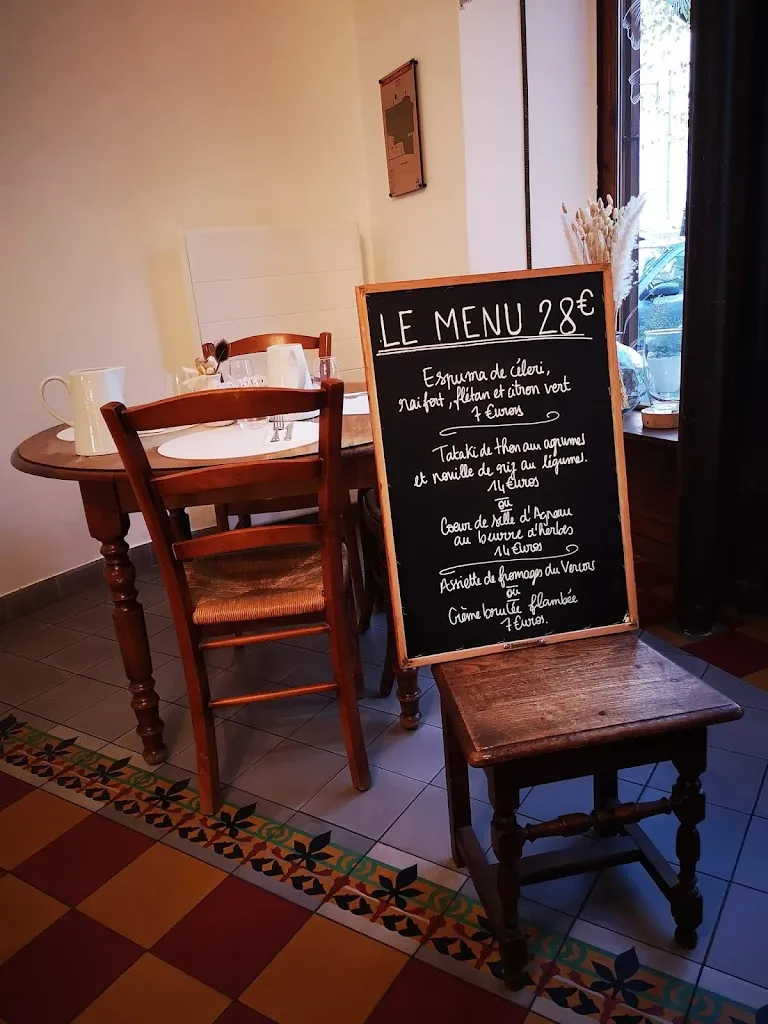 LE MENU 28€
Espuma de céleri,
raifort, flétan et citron vert
7 Euros
Tataki de thon aux agrumes
et nouille de riz au légumes.
14 Euros
ou
Coeur de selle d'Agneau
au beurre d'herbes
14 Euros
Assiette de fromages du Vercors
ou
Crème brulée flambée
7 Euros.